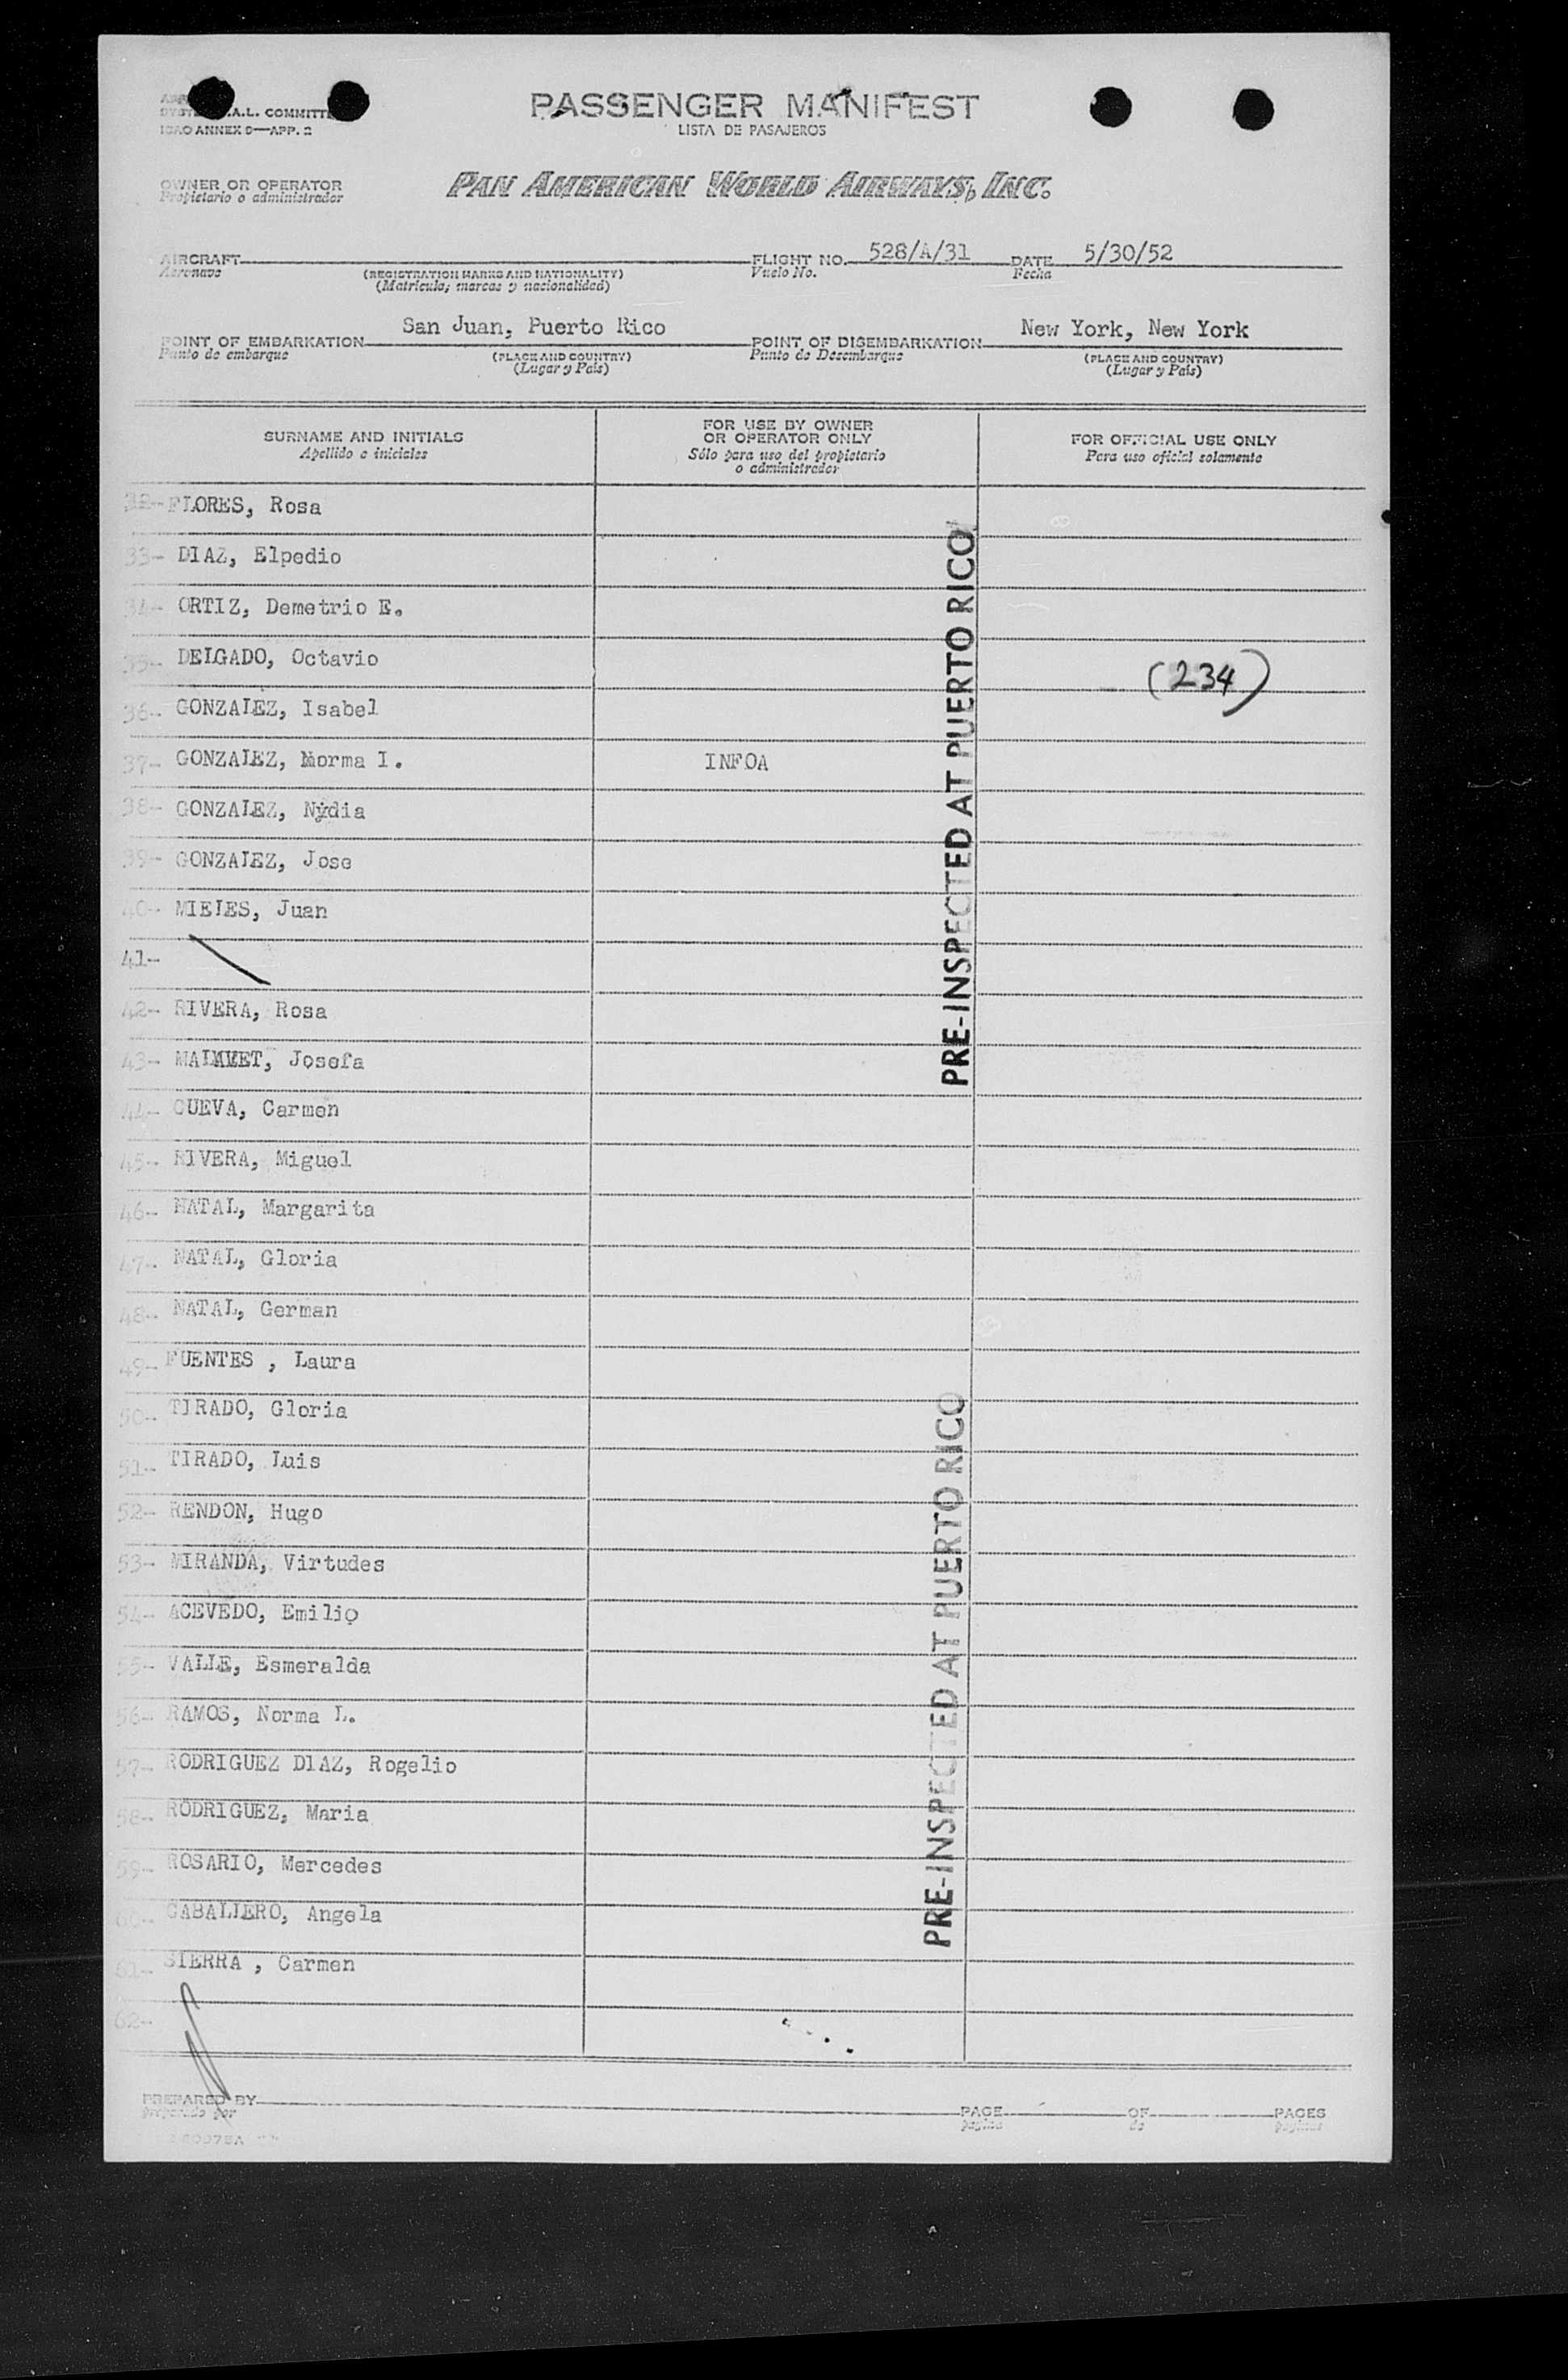 SYSTEM A.L. COMMITTE
ICAO ANNEX 9—APP. 2
PASSENGER MANIFEST
LISTA DE PASAJEROS
OWNER OR OPERATOR
Propietario o administrador
PAN AMERICAN WORLD AIRWAYS, INC.
AIRCRAFT
Aeronave
(REGISTRATION MARKS AND NATIONALITY)
(Matricula, marcas y nacionalidad)
FLIGHT NO. 528/A/31
Vuelo No.
DATE 5/30/52
Fecha
POINT OF EMBARKATION San Juan, Puerto Rico
Punto de embarque
(PLACE AND COUNTRY)
(Lugar y Pais)
POINT OF DISEMBARKATION New York, New York
Punto de Desembarque
(PLACE AND COUNTRY)
(Lugar y Pais)
SURNAME AND INITIALS
Apellido e iniciales
FOR USE BY OWNER
OR OPERATOR ONLY
Sólo para uso del propietario
o administrador
FOR OFFICIAL USE ONLY
Para uso oficial solamente
32- FLORES, Rosa
33- DIAZ, Elpedio
34- ORTIZ, Demetrio E.
35- DELGADO, Octavio
(234)
36- GONZALEZ, Isabel
37- GONZALEZ, Norma I. INFOA
38- GONZALEZ, Nydia
39- GONZALEZ, Jose
40- MIELES, Juan
41-
42- RIVERA, Rosa
43- Josefa
44- CUEVA, Carmen
45- RIVERA, Miguel
46- NATAL, Margarita
47- NATAL, Gloria
48- NATAL, German
49- FUENTES , Laura
50- TIRADO, Gloria
51- TIRADO, Luis
52- RENDON, Hugo
53- MIRANDA, Virtudes
54- ACEVEDO, Emilio
55- VALLE, Esmeralda
56- RAMOS, Norma L.
57- RODRIGUEZ DIAZ, Rogelio
58- RODRIGUEZ, Maria
59- ROSARIO, Mercedes
60- CABALLERO, Angela
61- SIERRA , Carmen
62-
PRE-INSPECTED AT PUERTO RICO
PRE-INSPECTED AT PUERTO RICO
PREPARED BY
preparado por
PAGE OF PAGES
pagina de paginas